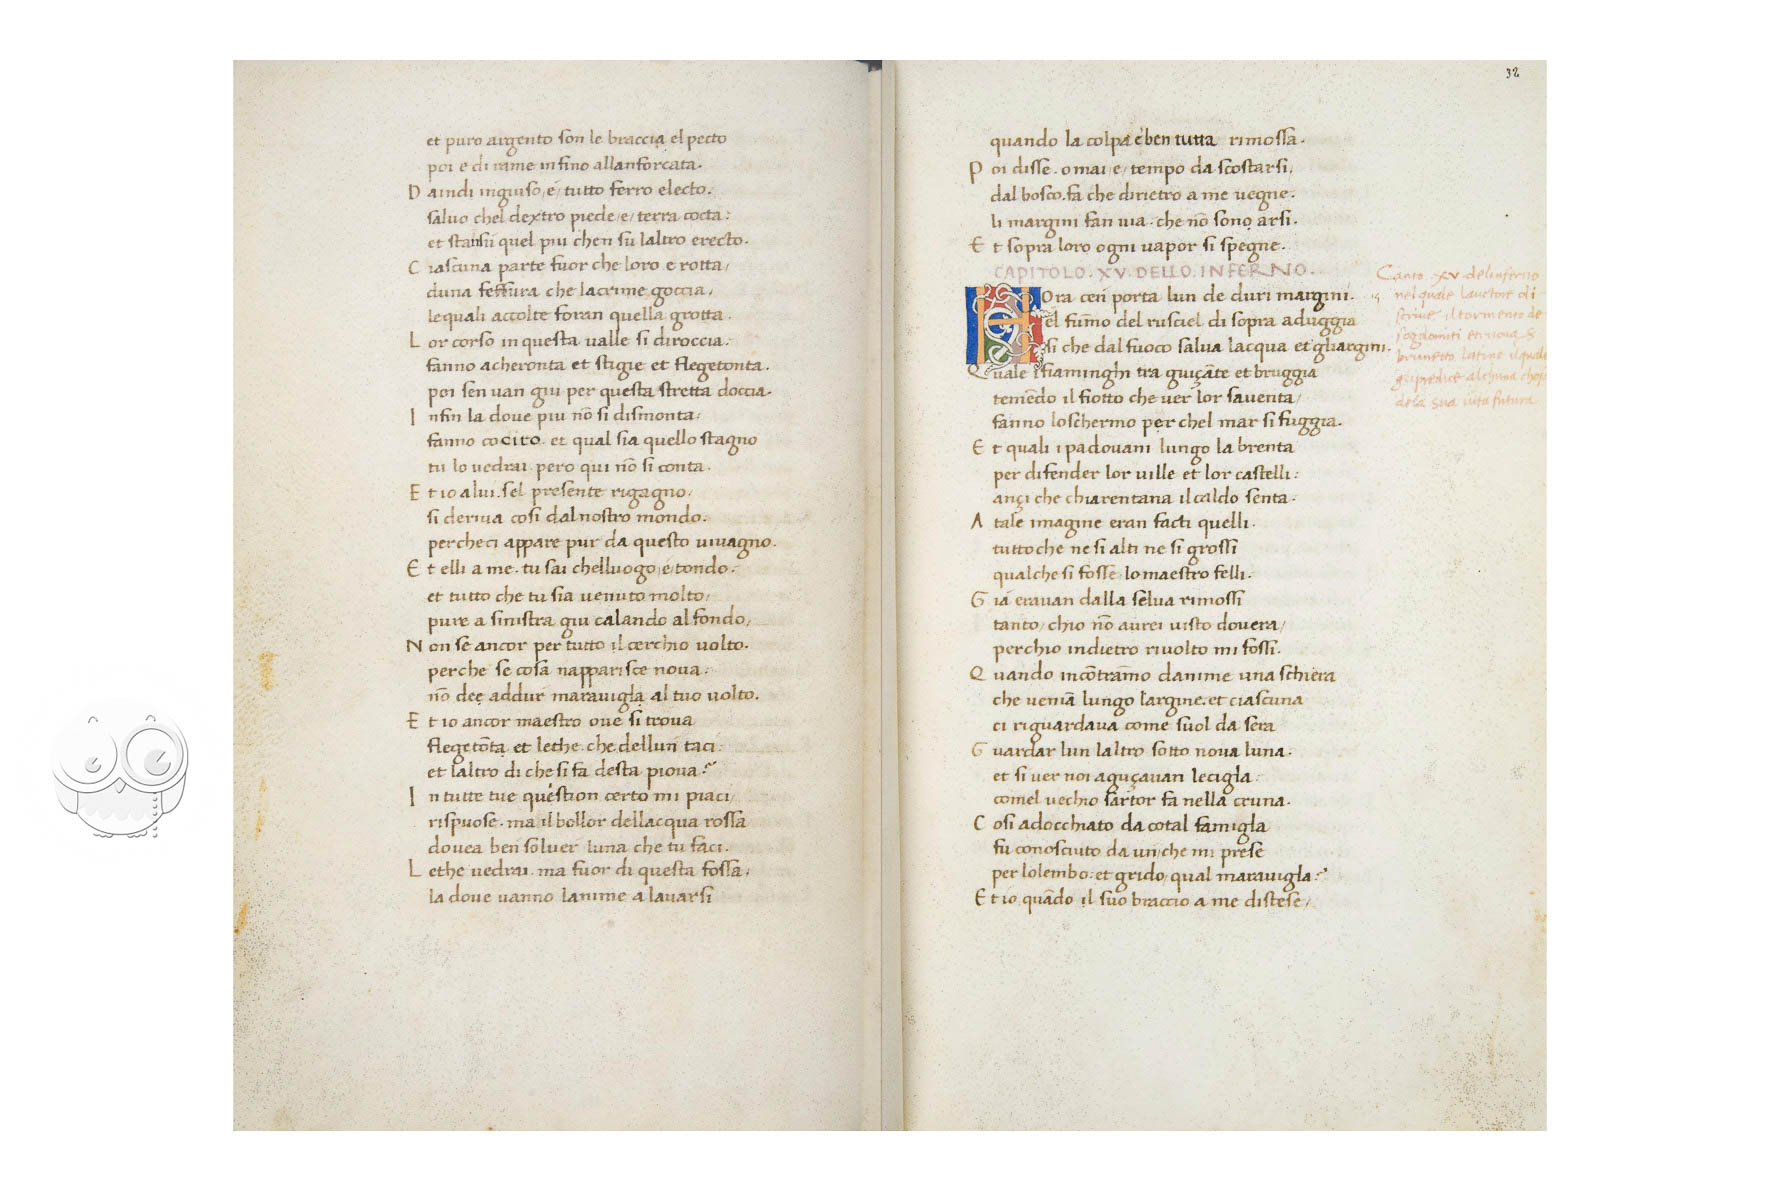 et puro argento son le braccia el pecto
poi e di rame infino allanforcata.
D aindi inguiso, e, tutto ferro electo.
salvo chel dextro piede, e, terra cocta:
et stassi quel piu chen su laltro erecto.
C iascuna parte fuor che loro e rotta,
duna fessura che lacrime goccia,
lequali accolte foran quella grotta.
L or corso in questa valle si diroccia:
fanno acheronta et stigie et flegetonta.
poi sen van giu per questa stretta doccia.
I nfin la dove piu nō si dismonta,
fanno cocito. et qual sia quello stagno
tu lo vedrai. pero qui nō si conta.
E t io a lui. sel presente rigagno,
si deriva cosi dal nostro mondo.
perche ci appare pur da questo vivagno.
E t elli a me. tu sai chelluogo, e, tondo.
et tutto che tu sia venuto molto,
pure a sinistra giu calando al fondo,
N on se ancor per tutto il cerchio volto.
perche se cosa napparisce nova:
nō dee addur maravigla al tuo volto.
E t io ancor maestro ove si trova
flegetōta et lethe. che dellun taci:
et laltro di che si fa desta piova:
I n tutte tue question certo mi piaci,
rispuose. ma il bollor dellacqua rossa
dovea ben solver luna che tu faci.
L ethe vedrai. ma fuor di questa fossa,
la dove vanno lanime a lavarsi
32
quando la colpa e ben tutta rimossa.
P oi disse. omai, e, tempo da scostarsi,
dal bosco. fa che dirietro a me vegne.
li margini fan via. che nō sono arsi.
E t sopra loro ogni vapor si spegne.
CAPITOLO. XV. DELLO. INFERNO.
Ora cen porta lun de duri margini.
el fumo del rusciel di sopra aduggia
si che dal fuoco salva lacqua et gliargini.
Q uale i fiaminghi tra guiçāte et bruggia
temēdo il fiotto che ver lor saventa,
fanno loschermo perchel mar si fuggia.
E t quali i padovani lungo la brenta
per difender lor ville et lor castelli:
ançi che chiarentana il caldo senta.
A tale imagine eran facti quelli.
tutto che ne si alti ne si grossi
qualche si fosse lo maestro felli.
G ia eravan dalla selva rimossi
tanto, chio nō aurei visto dovera,
perchio indietro rivolto mi fossi.
Q vando incōtramo danime una schiera
che veniā lungo largine. et ciascuna
ci riguardava come suol da sera
G vardar lun laltro sotto nova luna.
et si ver noi aguçavan lecigla:
comel vechio sartor fa nella cruna.
C osi adocchiato da cotal famigla
fu conosciuto da un, che mi prese
per lo lembo: et grido, qual maravigla:
E t io quādo il suo braccio a me distese,
Canto. xv. delinferno
nel quale lauctore di
scrive il tormento de
sogdomiti et truova S
brunetto latino il quale
gli predice alchuna chosa
dela sua vita futura